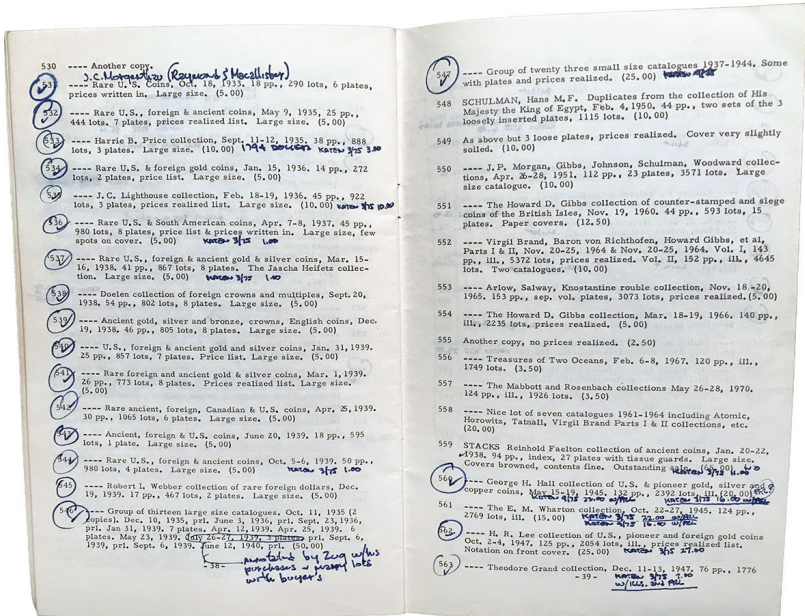 530 ---- Another copy.
J.C. Morgenthau (Raymond & Macallister)
531 ---- Rare U.S. Coins, Oct. 18, 1933. 18 pp., 290 lots, 6 plates,
prices written in. Large size. (5.00)
532 ---- Rare U.S., foreign & ancient coins, May 9, 1935, 25 pp.,
444 lots, 7 plates, prices realized list. Large size. (5.00)
533 ---- Harrie B. Price collection, Sept. 11-12, 1935. 38 pp., 888
lots, 3 plates. Large size. (10.00) 1794 DOLLAR KATEN 3/75 3.00
534 ---- Rare U.S. & foreign gold coins, Jan. 15, 1936. 14 pp., 272
lots, 2 plates, price list. Large size. (5.00)
535 ---- J.C. Lighthouse collection, Feb. 18-19, 1936. 45 pp., 922
lots, 3 plates, prices realized list. Large size. (10.00) KATEN 3/75 10.00
536 ---- Rare U.S. & South American coins, Apr. 7-8, 1937. 45 pp.,
980 lots, 8 plates, price list & prices written in. Large size, few
spots on cover. (5.00) KATEN 3/75 1.00
537 ---- Rare U.S., foreign & ancient gold & silver coins, Mar. 15-
16, 1938. 41 pp., 867 lots, 8 plates. The Jascha Heifetz collec-
tion. Large size. (5.00) KATEN 3/75
538 ---- Doelen collection of foreign crowns and multiples, Sept. 20,
1938, 54 pp., 802 lots, 8 plates. Large size. (5.00)
539 ---- Ancient gold, silver and bronze, crowns, English coins, Dec.
19, 1938. 46 pp., 805 lots, 8 plates. Large size. (5.00)
540 ---- U.S., foreign & ancient gold and silver coins, Jan. 31, 1939.
25 pp., 857 lots, 7 plates. Price list. Large size. (5.00)
541 ---- Rare foreign and ancient gold & silver coins, Mar. 1, 1939.
26 pp., 773 lots, 8 plates. Prices realized list. Large size.
(5.00)
542 ---- Rare ancient, foreign, Canadian & U.S. coins, Apr. 25, 1939.
30 pp., 1065 lots, 6 plates. Large size. (5.00)
543 ---- Ancient, foreign & U.S. coins, June 20, 1939. 18 pp., 595
lots, 1 plate. Large size. (5.00)
544 ---- Rare U.S., foreign & ancient coins, Oct. 5-6, 1939. 50 pp.,
980 lots, 4 plates. Large size. (5.00) KATEN 3/75 1.00
545 ---- Robert L. Webber collection of rare foreign dollars, Dec.
19, 1939. 17 pp., 467 lots, 2 plates. Large size. (5.00)
546 ---- Group of thirteen large size catalogues. Oct. 11, 1935 (2
copies), Dec. 10, 1935, prl. June 3, 1936, prl. Sept. 23, 1936,
prl. Jan 31, 1939, 7 plates. Apr. 12, 1939, Apr. 25, 1939, 6
plates. May 23, 1939. July 26-27, 1939, 3 plates prl. Sept. 6,
1939, prl. Sept. 6, 1939. June 12, 1940, prl. (50.00)
Annotated by Zug w/his
purchases + many lots
with buyer's
- 38 -
547 ---- Group of twenty three small size catalogues 1937-1944. Some
with plates and prices realized. (25.00) KATEN
548 SCHULMAN, Hans M.F. Duplicates from the collection of His
Majesty the King of Egypt, Feb. 4, 1950. 44 pp., two sets of the 3
loosely inserted plates, 1115 lots. (10.00)
549 As above but 3 loose plates, prices realized. Cover very slightly
soiled. (10.00)
550 ---- J.P. Morgan, Gibbs, Johnson, Schulman, Woodward collec-
tions, Apr. 26-28, 1951. 112 pp., 23 plates, 3571 lots. Large
size catalogue. (10.00)
551 ---- The Howard D. Gibbs collection of counter-stamped and siege
coins of the British Isles, Nov. 19, 1960. 44 pp., 593 lots, 15
plates. Paper covers. (12.50)
552 ---- Virgil Brand, Baron von Richthofen, Howard Gibbs, et al,
Parts I & II, Nov. 20-25, 1964 & Nov. 20-25, 1964. Vol. I, 143
pp., ill., 5372 lots, prices realized. Vol. II, 152 pp., ill., 4645
lots. Two catalogues. (10.00)
553 ---- Arlow, Salway, Knostantine rouble collection, Nov. 18-20,
1965. 153 pp., sep. vol. plates, 3073 lots, prices realized. (5.00)
554 ---- The Howard D. Gibbs collection, Mar. 18-19, 1966. 140 pp.,
ill., 2235 lots, prices realized. (5.00)
555 Another copy, no prices realized. (2.50)
556 ---- Treasures of Two Oceans, Feb. 6-8, 1967. 120 pp., ill.,
1749 lots. (3.50)
557 ---- The Mabbott and Rosenbach collections May 26-28, 1970.
124 pp., ill., 1926 lots. (3.50)
558 ---- Nice lot of seven catalogues 1961-1964 including Atomic,
Horowitz, Tatnall, Virgil Brand Parts I & II collections, etc.
(20.00)
559 STACKS Reinhold Faelton collection of ancient coins, Jan. 20-22,
1938. 94 pp., index, 27 plates with tissue guards. Large size.
Covers browned, contents fine. Outstanding sale.
560 ---- George H. Hall collection of U.S. & pioneer gold, silver and
copper coins, May 15-19, 1945. 132 pp., 2392 lots, ill. (20.00)
KATEN 3/75 16.00 w/PRL
561 ---- The E. M. Wharton collection, Oct. 22-27, 1945. 124 pp.,
2769 lots, ill. (15.00) KATEN 3/75 22.00 w/PRL
KATEN 3/75 16.00 w/PRL
562 ---- H. R. Lee collection of U.S., pioneer and foreign gold coins
Oct. 2-4, 1947. 125 pp., 2054 lots, ill., prices realized list.
Notation on front cover. (25.00) KATEN 3/75 27.00
563 ---- Theodore Grand collection, Dec. 11-13, 1947. 76 pp., 1776
- 39 - KATEN 3/75 7.00
w/ILLS. and PRL